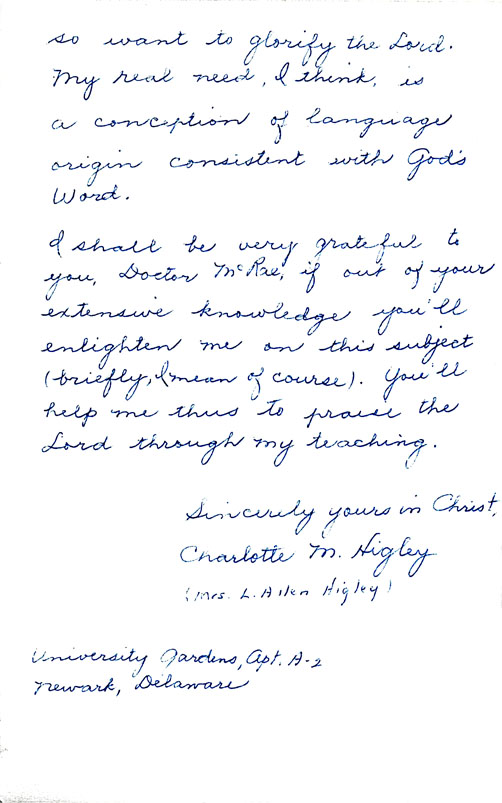 so want to glorify the Lord.
My real need, I think, is
a conception of language
origin consistent with God's
Word.
I shall be very grateful to
you, Doctor McRae, if out of your
extensive knowledge you'll
enlighten me on this subject
(briefly, I mean of course). You'll
help me thus to praise the
Lord through my teaching.
Sincerely yours in Christ,
Charlotte M. Higley
(Mrs. L. Allen Higley)
University Gardens, Apt. A-2
Newark, Delaware